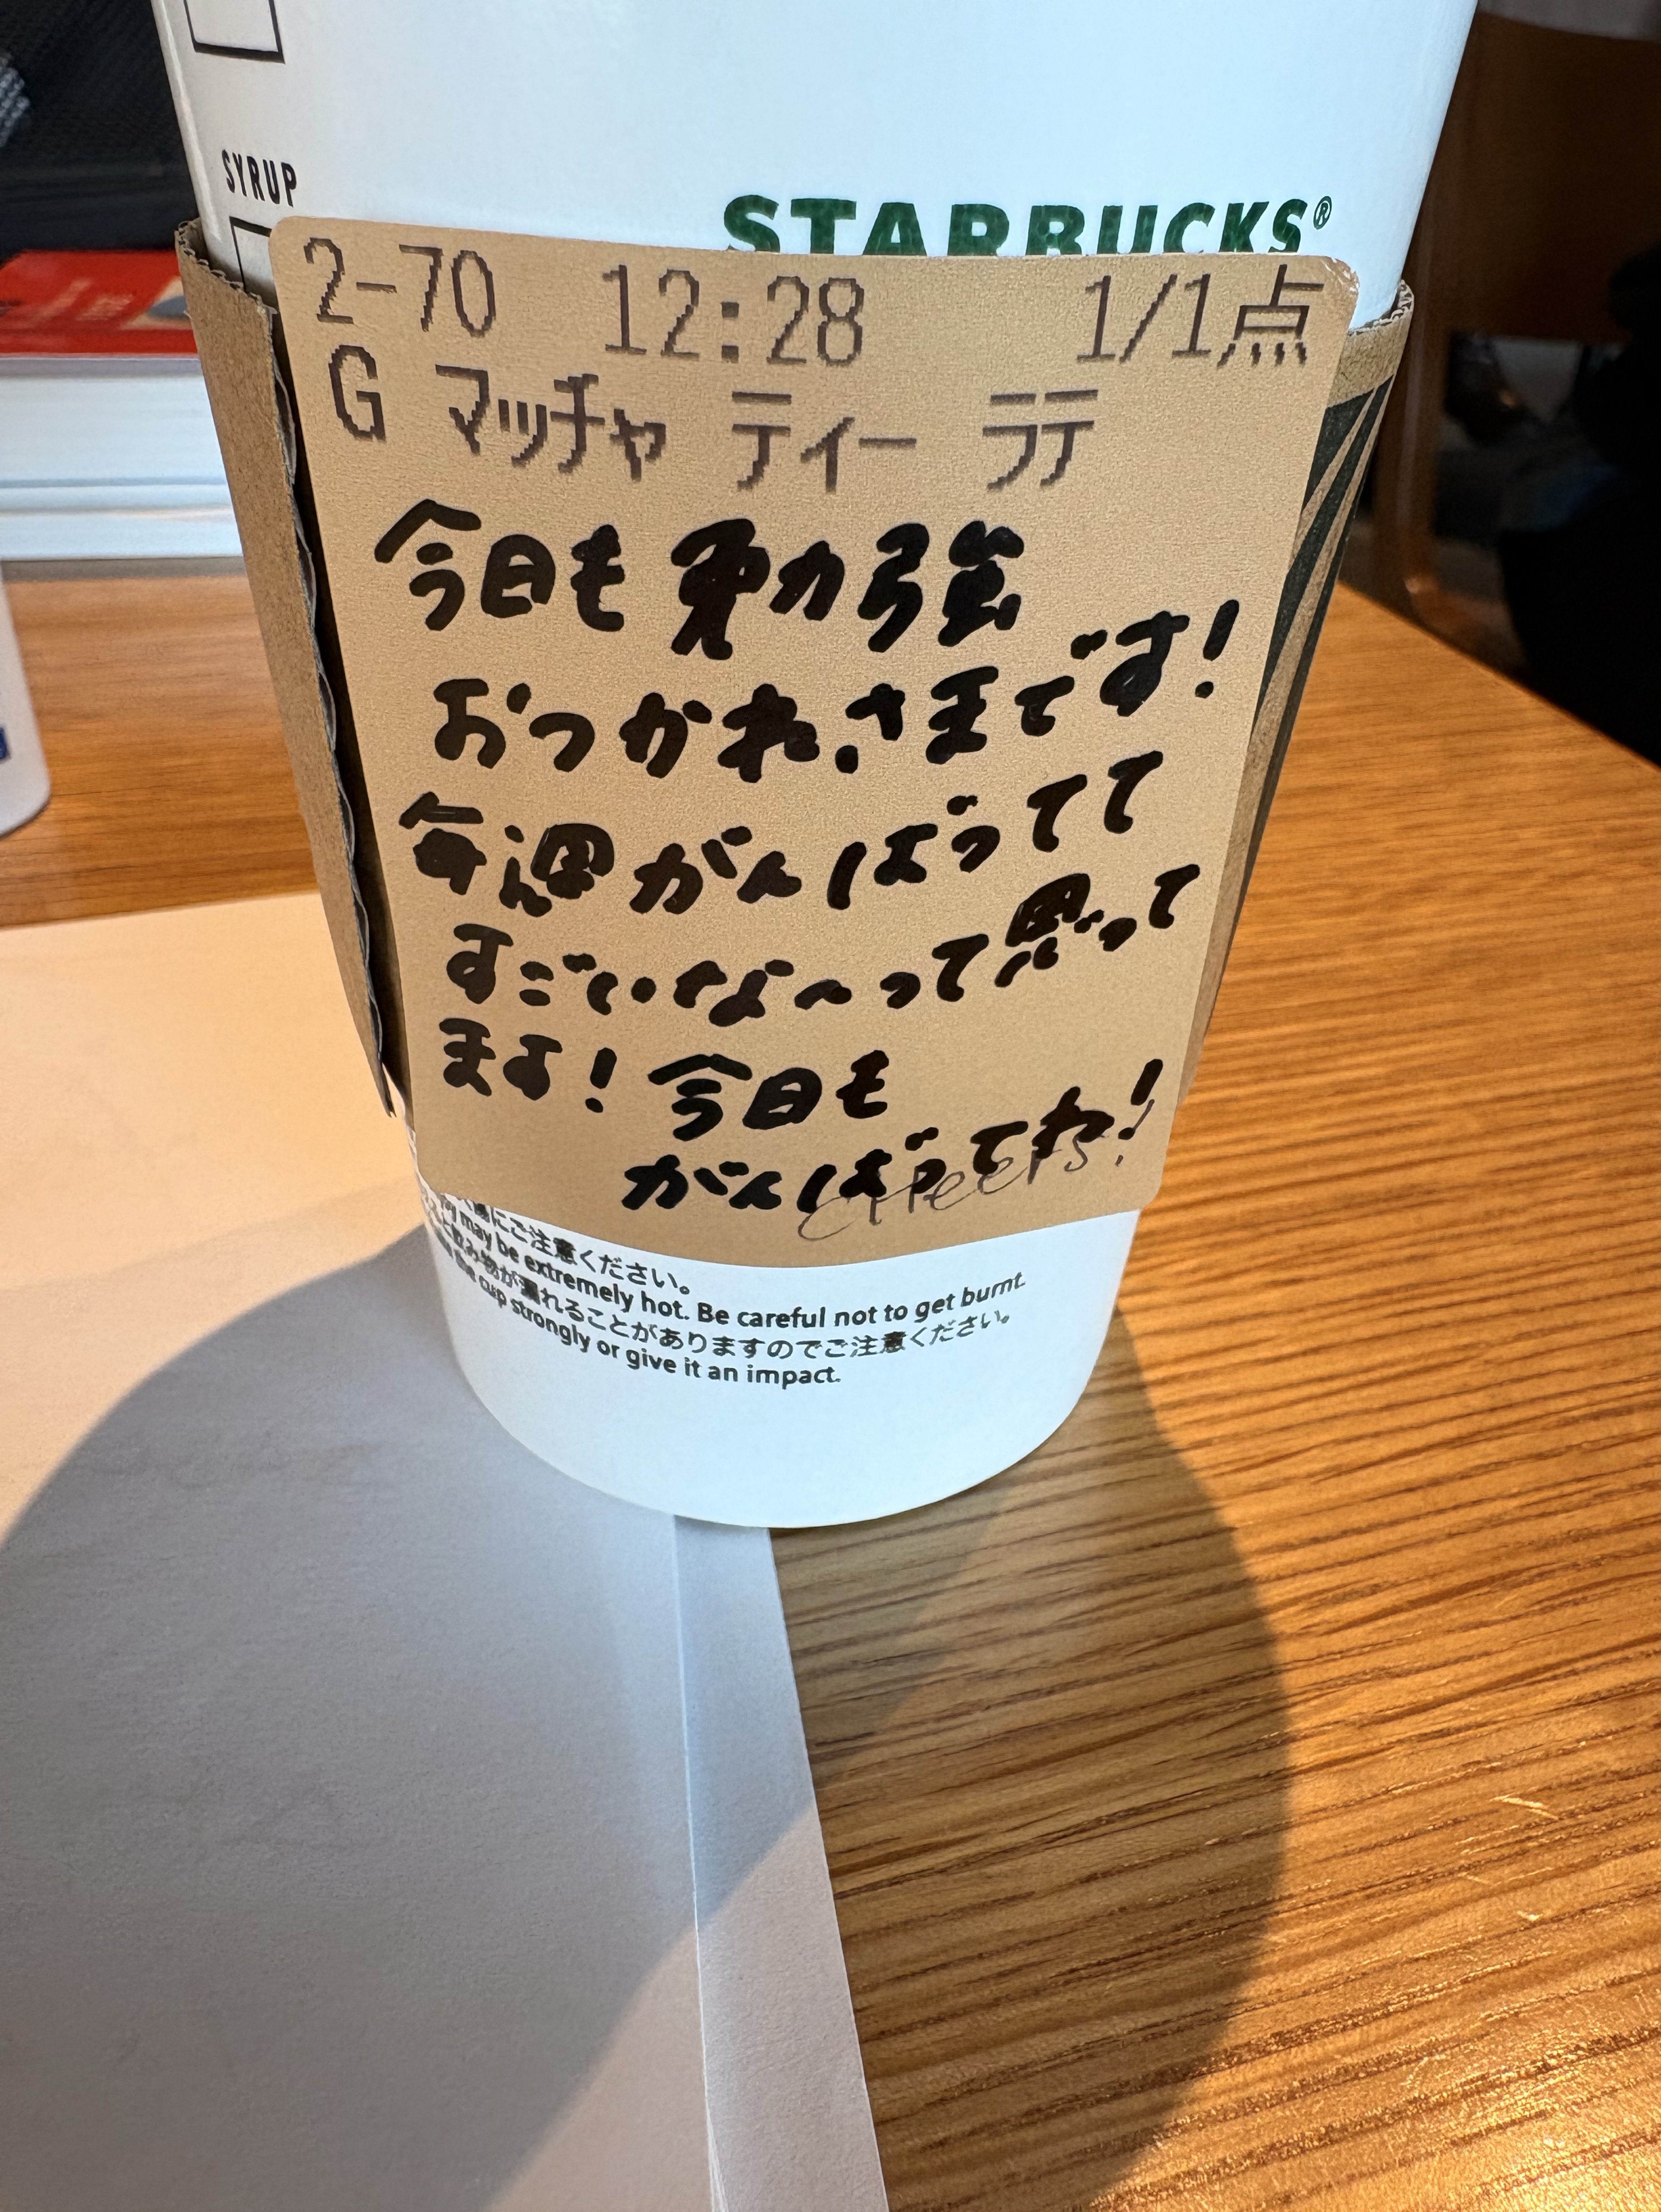 SYRUP
STARBUCKS®
2-70 12:28 1/1点
G マッチャ ティー ラテ
今日も勉強
おつかれさまです!
毎週がんばってて
すごいな〜って思って
ます! 今日も
がんばってね!
Cheers!
にご注意ください。
may be extremely hot. Be careful not to get burnt.
飲み物が漏れることがありますのでご注意ください。
the cup strongly or give it an impact.